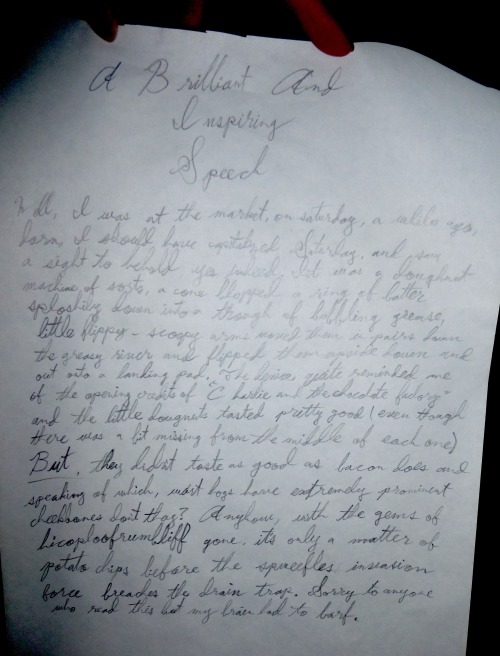 A Brilliant And
Inspiring
Speech
I was at the market, on saturday, a while ago,
darn, I should have capitalized Saturday, and saw
a sight to behold yes indeed, it was a doughnut
machine, of sorts, a cone blopped a ring of batter
sploshily down into a trough of bubbling grease,
little flippy-scoopy arms moved them in pairs down
the greasy river and flipped them upside down and
out onto a landing pad. The device quite reminded me
of the opening credits of "Charlie and the chocolate factory"
and the little dougnuts tasted pretty good (even though
there was a bit missing from the middle of each one)
But, they didst taste as good as bacon does and
speaking of which, most hogs have extremely prominent
cheekbones don't they? Anyhow, with the gems of
gone, its only a matter of
potato chips before the invasion
force breaches the drain trap. Sorry to anyone
who read this but my brain had to barf.